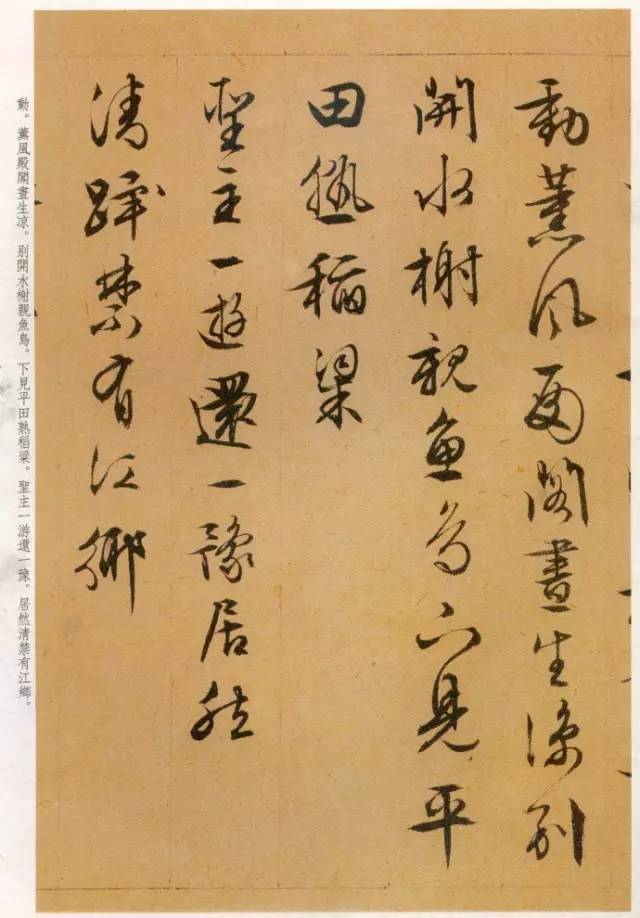 動薰風閣晝生涼别
開水榭親魚鳥下見平
田熟稻梁
聖主一遊還一豫居然
清蹕禁有江鄉
動。薰風殿閣晝生凉。别開水榭親魚鳥。下見平田熟稻梁。聖主一游還一豫。居然清禁有江鄉。